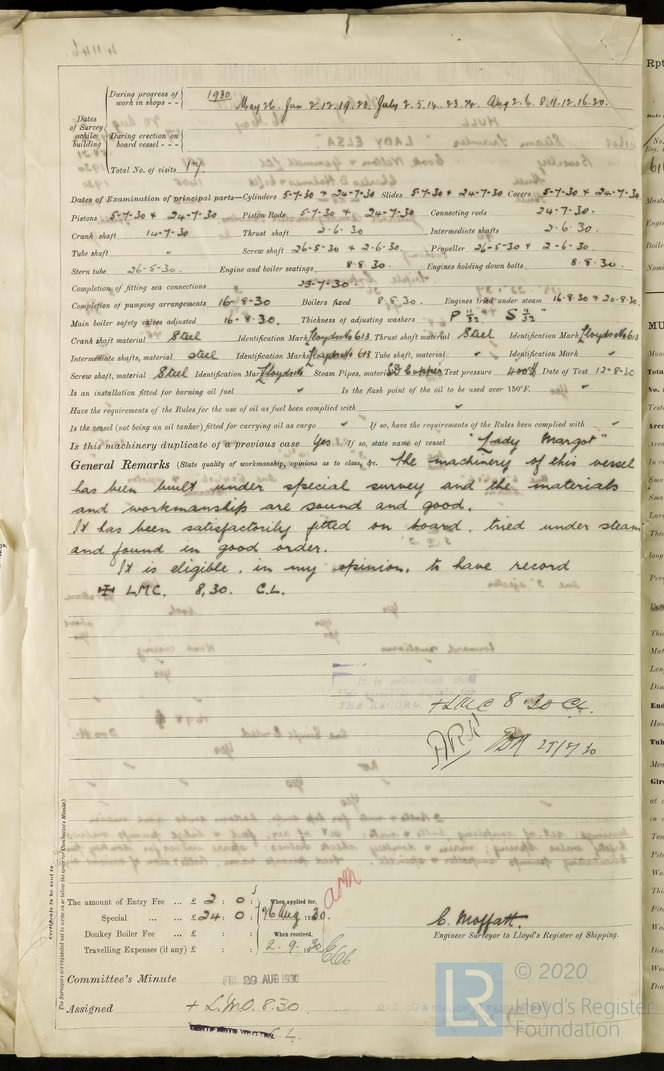 Dates of Survey while building
During progress of work in shops - - 1930 May 26. Jun 2.12.19.23. July 2.5.14.23.24. Aug 2.6.8.11.12.16.20.
During erection on board vessel - - -
Total No. of visits 17.
Dates of Examination of principal parts—Cylinders 5-7-30 & 24-7-30 Slides 5-7-30 & 24-7-30 Covers 5-7-30 & 24-7-30
Pistons 5-7-30 & 24-7-30 Piston Rods 5-7-30 & 24-7-30 Connecting rods 24-7-30.
Crank shaft 14-7-30 Thrust shaft 2-6-30 Intermediate shafts 2-6-30.
Tube shaft Screw shaft 26-5-30 & 2-6-30. Propeller 26-5-30 & 2-6-30.
Stern tube 26-5-30. Engine and boiler seatings 8.8.30. Engines holding down bolts 8.8.30.
Completion of fitting sea connections 23-7-30.
Completion of pumping arrangements 16-8-30 Boilers fixed 8.8.30. Engines tried under steam 16.8.30 & 20.8.30.
Main boiler safety valves adjusted 16.8.30. Thickness of adjusting washers P 11/32" S 11/32"
Crank shaft material Steel Identification Mark Lloyds No 613 Thrust shaft material Steel Identification Mark Lloyds No 613
Intermediate shafts, material steel Identification Marks Lloyds No 613 Tube shaft, material Identification Mark
Screw shaft, material Steel Identification Mark Lloyds No Steam Pipes, material SD Copper Test pressure 400 lb Date of Test 12-8-30
Is an installation fitted for burning oil fuel Is the flash point of the oil to be used over 150°F.
Have the requirements of the Rules for the use of oil as fuel been complied with
Is the vessel (not being an oil tanker) fitted for carrying oil as cargo If so, have the requirements of the Rules been complied with
Is this machinery duplicate of a previous case Yes If so, state name of vessel "Lady Margot"
General Remarks (State quality of workmanship, opinions as to class, &c. The machinery of this vessel
has been built under special survey and the materials
and workmanship are sound and good.
It has been satisfactorily fitted on board, tried under steam
and found in good order.
It is eligible, in my opinion, to have record
✠ L.M.C. 8,30. C.L.
+ LMC 8.30 CL.
The amount of Entry Fee ... £ 2 : 0 : When applied for,
Special ... ... £ 24 : 0 : 26 Aug 1930.
Donkey Boiler Fee ... £ : : When received,
Travelling Expenses (if any) £ : : 2.9.1930
C. Moffatt.
Engineer Surveyor to Lloyd's Register of Shipping.
Committee's Minute FRI. 29 AUG 1930
Assigned + L.M.C. 8.30
C.L.
Certificate to be sent to
The Surveyors are requested not to write on or below the space for Committee's Minute.
LR © 2020
Lloyd's Register
Foundation